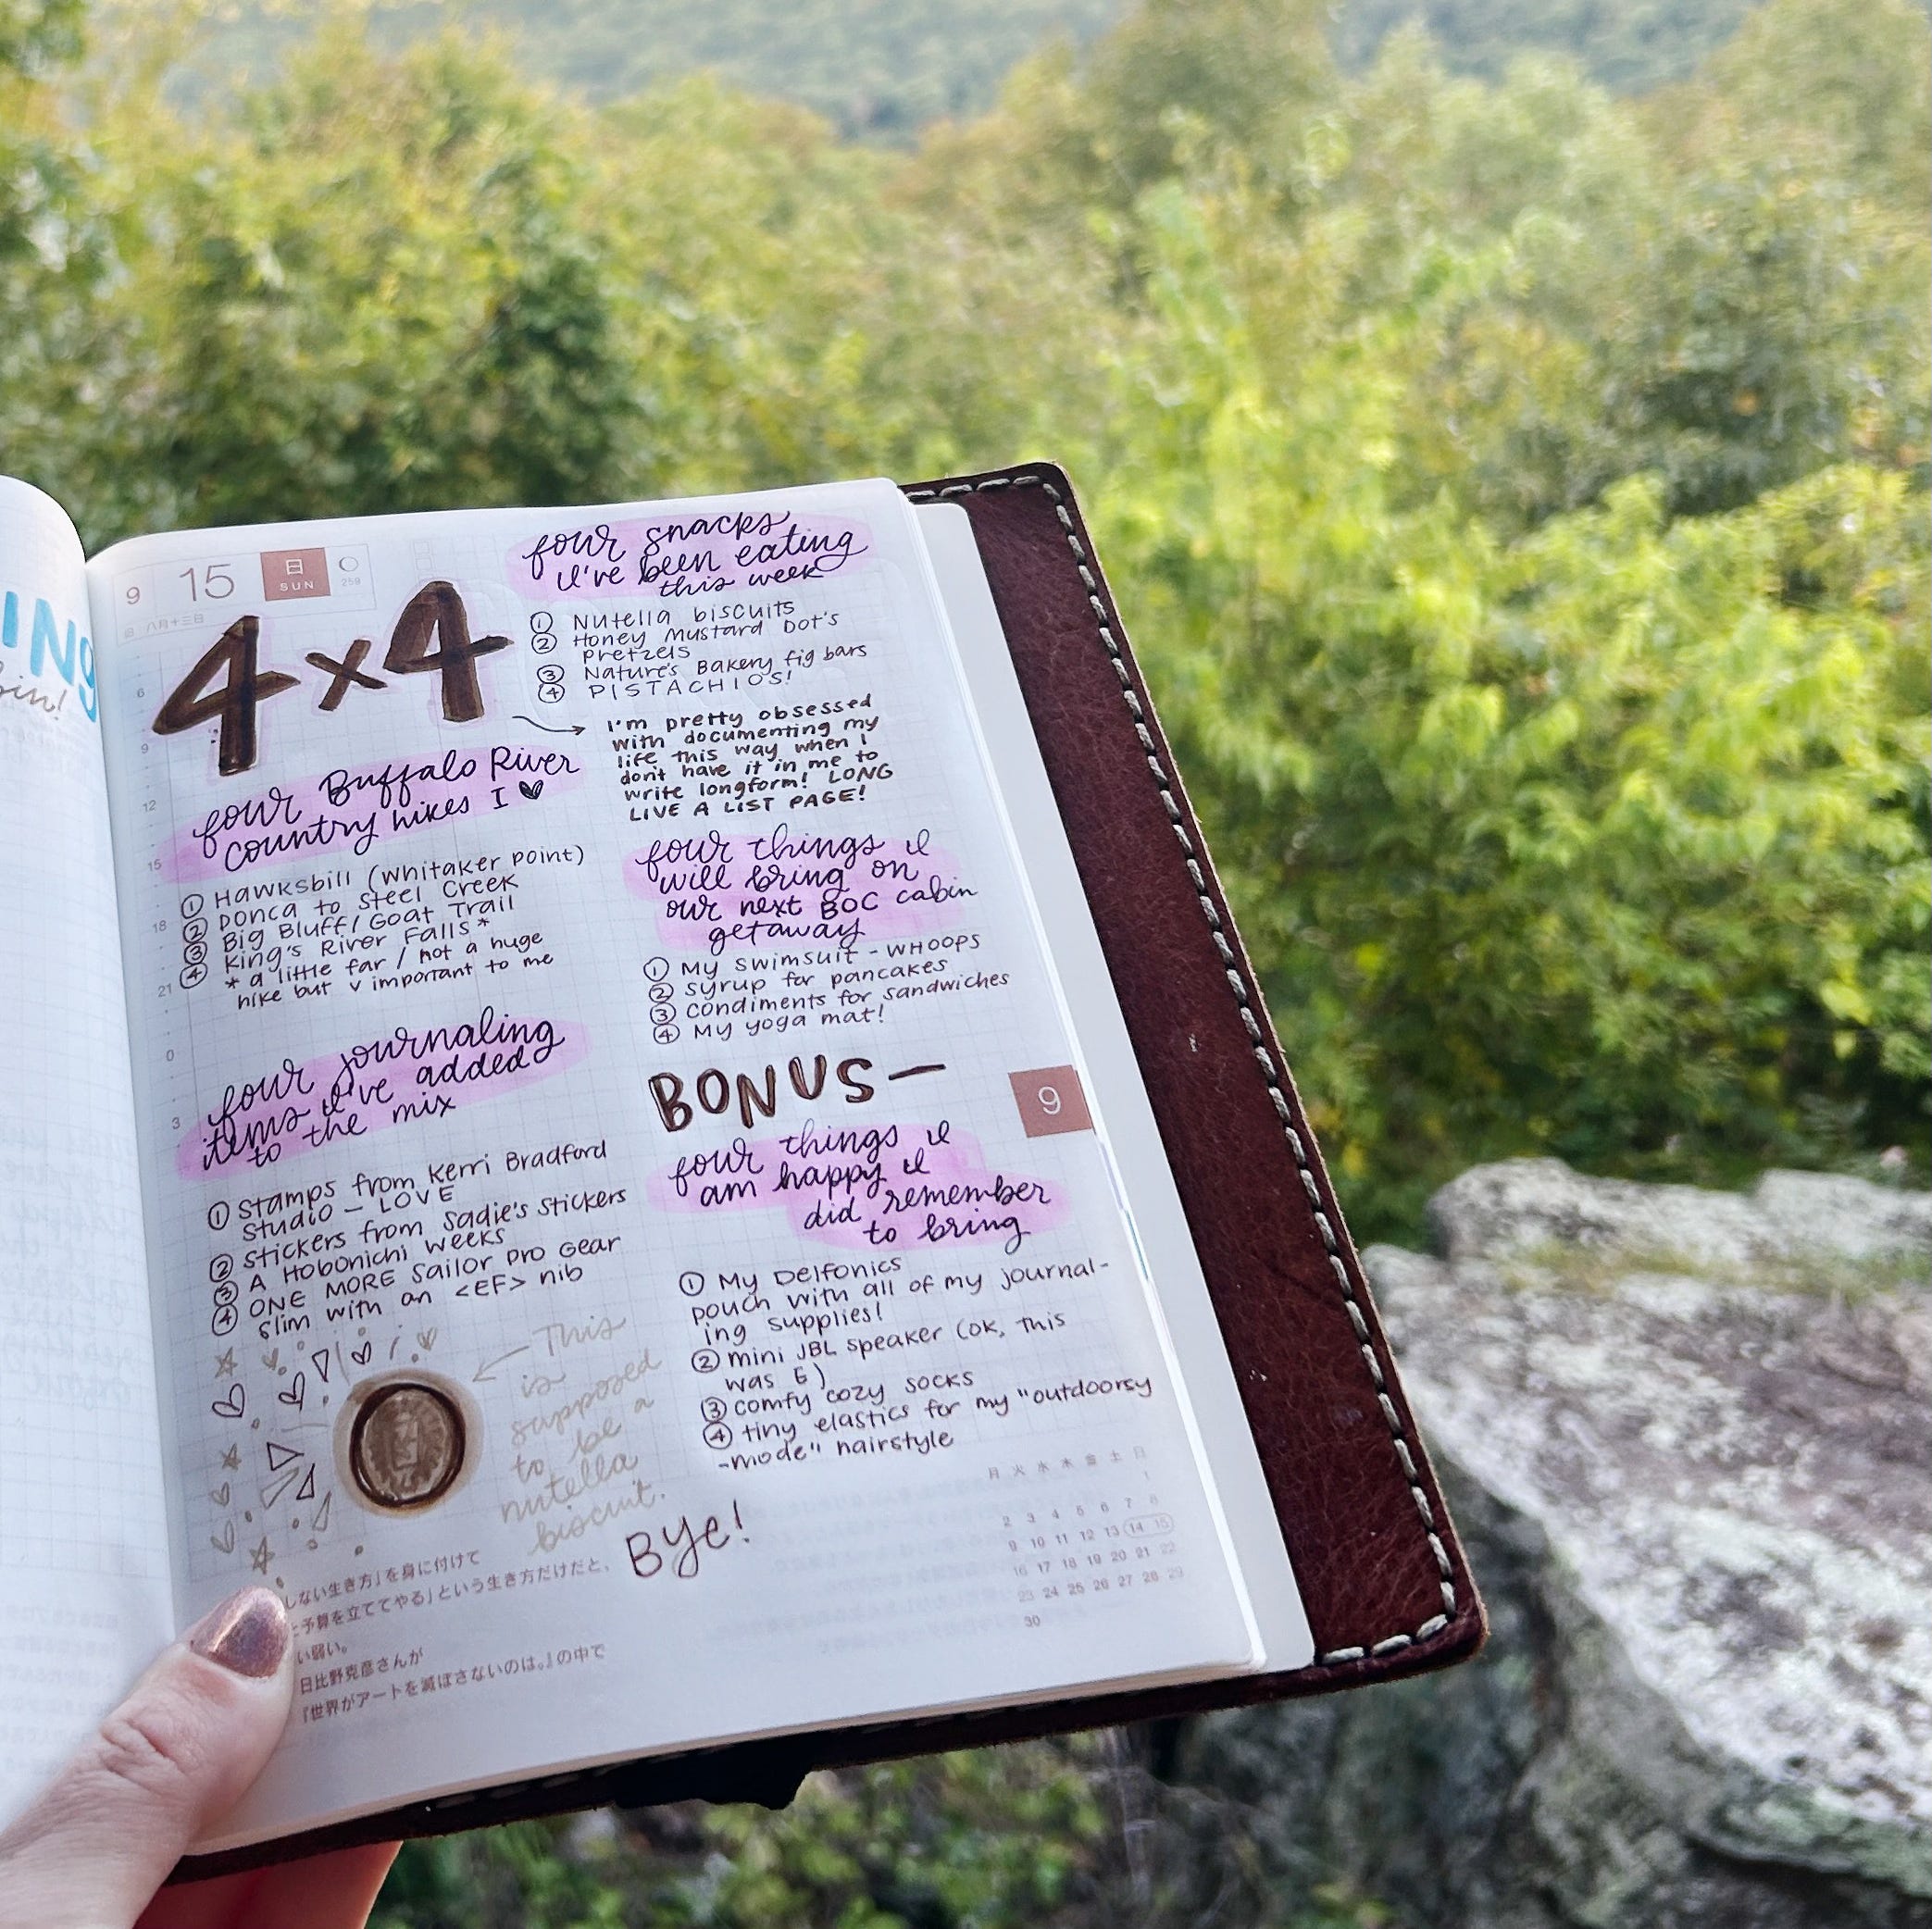 ING
in!
9 15 日 SUN 259
八月十三日
4x4
four snacks
I've been eating
this week
① Nutella biscuits
② Honey Mustard Dot's
pretzels
③ Nature's Bakery fig bars
④ PISTACHIOS!
I'm pretty obsessed
with documenting my
life this way when I
don't have it in me to
write longform! LONG
LIVE A LIST PAGE!
four Buffalo River
country hikes I ♥
① Hawksbill (Whitaker Point)
② Ponca to Steel Creek
③ Big Bluff/Goat Trail
④ King's River Falls*
* a little far / not a huge
hike but v important to me
four things I
will bring on
our next BOC cabin
getaway
① My swimsuit - WHOOPS
② syrup for pancakes
③ condiments for sandwiches
④ My yoga mat!
four journaling
items I've added
to the mix
① Stamps from Kerri Bradford
Studio - LOVE
② Stickers from Sadie's Stickers
③ A Hobonichi Weeks
④ ONE MORE Sailor Pro Gear
Slim with an <EF> nib
BONUS—
four things I
am happy I
did remember
to bring
① My Delfonics
pouch with all of my journal-
ing supplies!
② mini JBL speaker (ok, this
was G)
③ comfy cozy socks
④ tiny elastics for my "outdoorsy
-mode" hairstyle
This
is
supposed
to be a
nutella
biscuit.
Bye!
6
9
12
15
18
21
0
3
9
月 火 水 木 金 土 日
1
2 3 4 5 6 7 8
9 10 11 12 13 14 15
16 17 18 19 20 21 22
23 24 25 26 27 28 29
30
しない生き方」を身に付けて
と予算を立ててやる」という生き方だけだと、
い弱い。
日比野克彦さんが
『世界がアートを滅ぼさないのは。』の中で